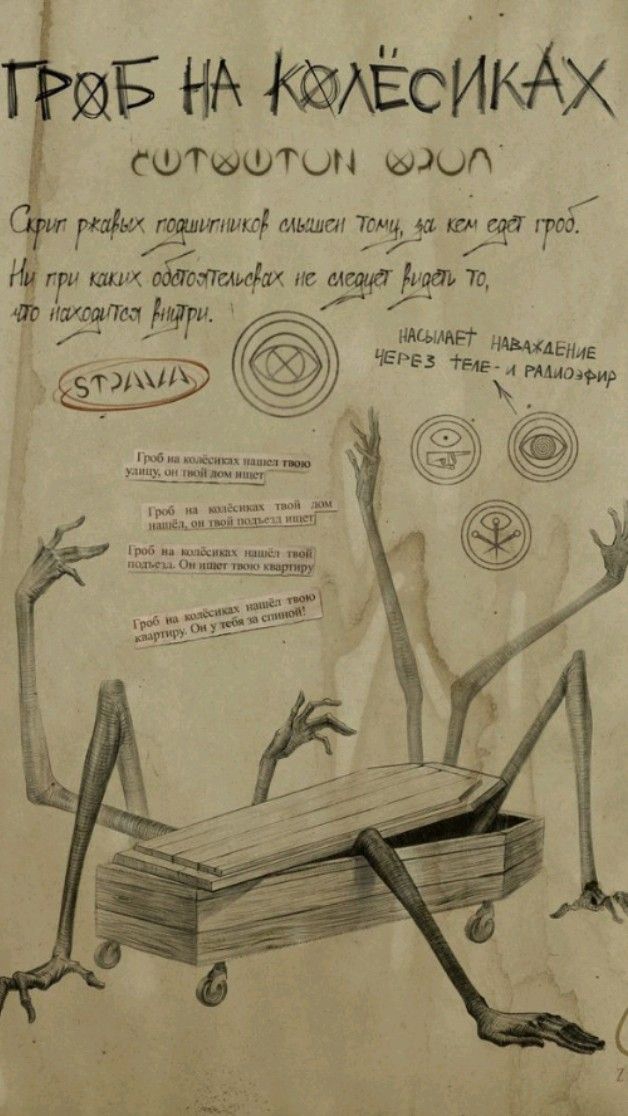 ГРОБ НА КОЛЁСИКАХ
Скрип ржавых подшипников слышен тому, за кем едет гроб.
Ни при каких обстоятельсвах не следует видеть то,
что находится внутри.
НАСЫЛАЕТ НАВАЖДЕНИЕ
ЧЕРЕЗ ТЕЛЕ- И РАДИОЭФИР
Гроб на колёсиках нашел твою
улицу, он твой дом ищет
Гроб на колёсиках твой дом
нашёл, он твой подъезд ищет
Гроб на колёсиках нашёл твой
подъезд. Он ищет твою квартиру
Гроб на колёсиках нашёл твою
квартиру. Он у тебя за спиной!